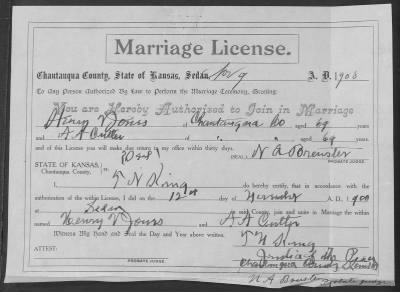 Marriage License.
Chautauqua County, State of Kansas, Sedan, Nov 9 A. D. 1908
To Any Person Authorized By Law to Perform the Marriage Ceremony, Greeting:
You are Hereby Authorized to Join in Marriage
Henry V Jones of Chautauqua Co aged 69 years
and A A Cutler of " " aged 69 years
and of this License you will make due return to my office within thirty days.
(SEAL) N A Brewster
PROBATE JUDGE.
STATE OF KANSAS,
Chautauqua County.
I, T N King do hereby certify, that in accordance with the
authorization of the within License, I did on the 12th day of A. D. 190
at Sedan in said County, join and unite in Marriage the within
named Henry V Jones and A A Cutler
Witness My Hand and Seal the Day and Year above written.
T N King
ATTEST:
Justice of the Peace
PROBATE JUDGE.
Chautauqua County
N A Brewster Probate Judge